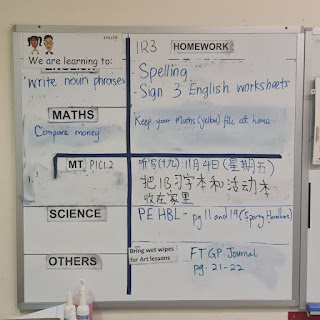 1R3 HOMEWORK
We are learning to:
ENGLISH
Write noun phrases
Spelling
- Sign 3 English worksheets
MATHS
Compare money
Keep your Maths (yellow) file at home.
MT P1C1.2
听写(十九):11月4日(星期五)
把1B习字本和活动本
收在家里
SCIENCE
PE HBL - pg 11 and 19 (Sporty
OTHERS
Bring wet wipes
for Art lessons
FTGP Journal
pg. 21-22